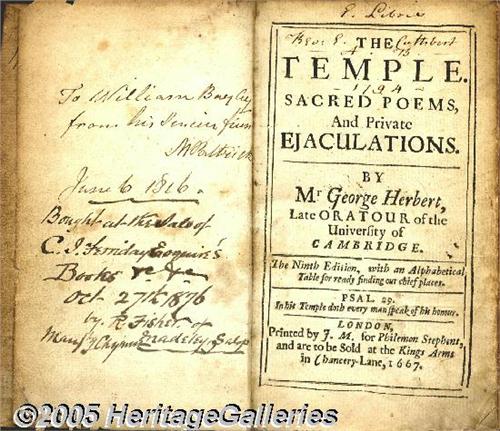 To William Bayley
from his sincere friend
June 6 1816.
Bought at the Sale of
C. J. Ferriday Esquire's
Books &c &c
Oct 27th 1876
by R Fisher of
Madeley Salop
E. Libris
THE
TEMPLE.
1194
SACRED POEMS,
And Private
EJACULATIONS.
BY
Mr George Herbert,
Late ORATOUR of the
University of
CAMBRIDGE.
The Ninth Edition, with an Alphabetical
Table for ready finding out chief places.
PSAL. 29.
In his Temple doth every man speak of his honour.
LONDON,
Printed by J. M. for Philemon Stephens,
and are to be Sold at the Kings Arms
in Chancery-Lane, 1667.
©2005 HeritageGalleries